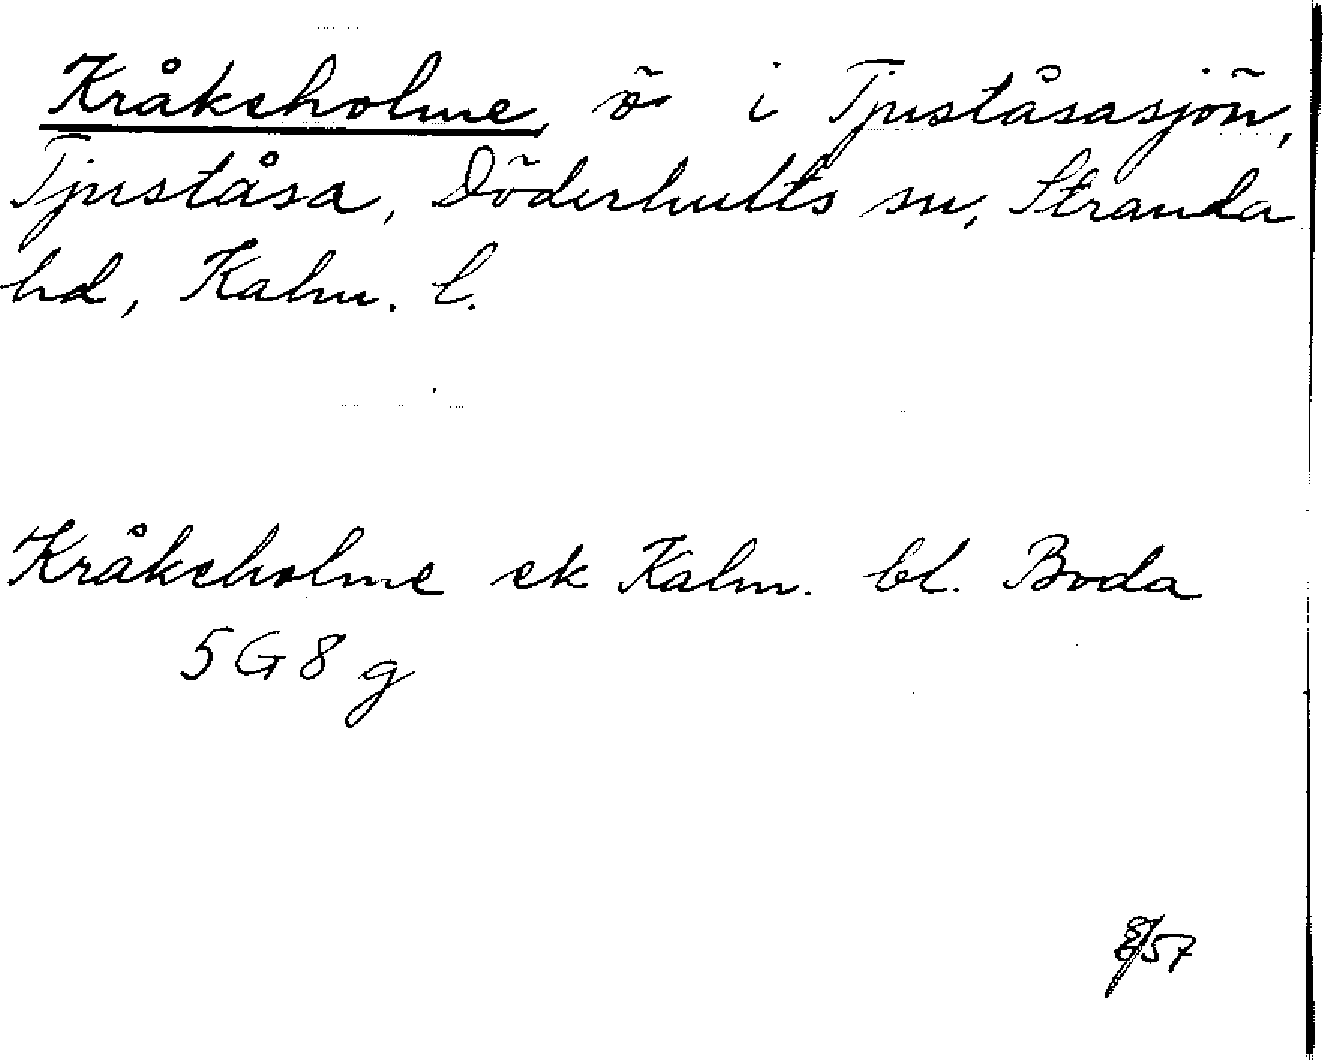 Kråkeholme, ö i Tjuståsasjön,
Tjuståsa, Döderhults sn, Stranda
hd, Kalm. l.
Kråkeholme ek Kalm. bl. Boda
5 G 8 g
/57